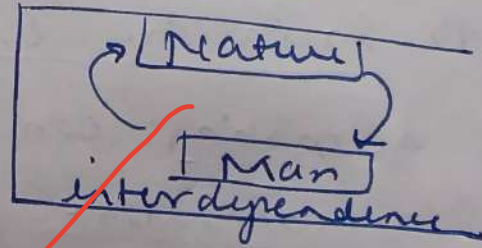 Nature
Man
interdependence